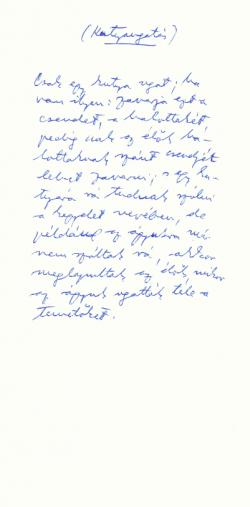 (Kutyaugatás)
Csak egy kutya ugat; ha
van ilyen: zavarja ezt a
csendet, a halottakét
pedig csak az élők ha-
lottaknak szánt csendjét
lehet zavarni; s egy ku-
tyára rá tudnak szólni
a kegyelet nevében, de
például az ágyukra már
nem szóltak rá, akkor
meglapultak az élők, mikor
az ágyuk ugatták tele a
temetőket.